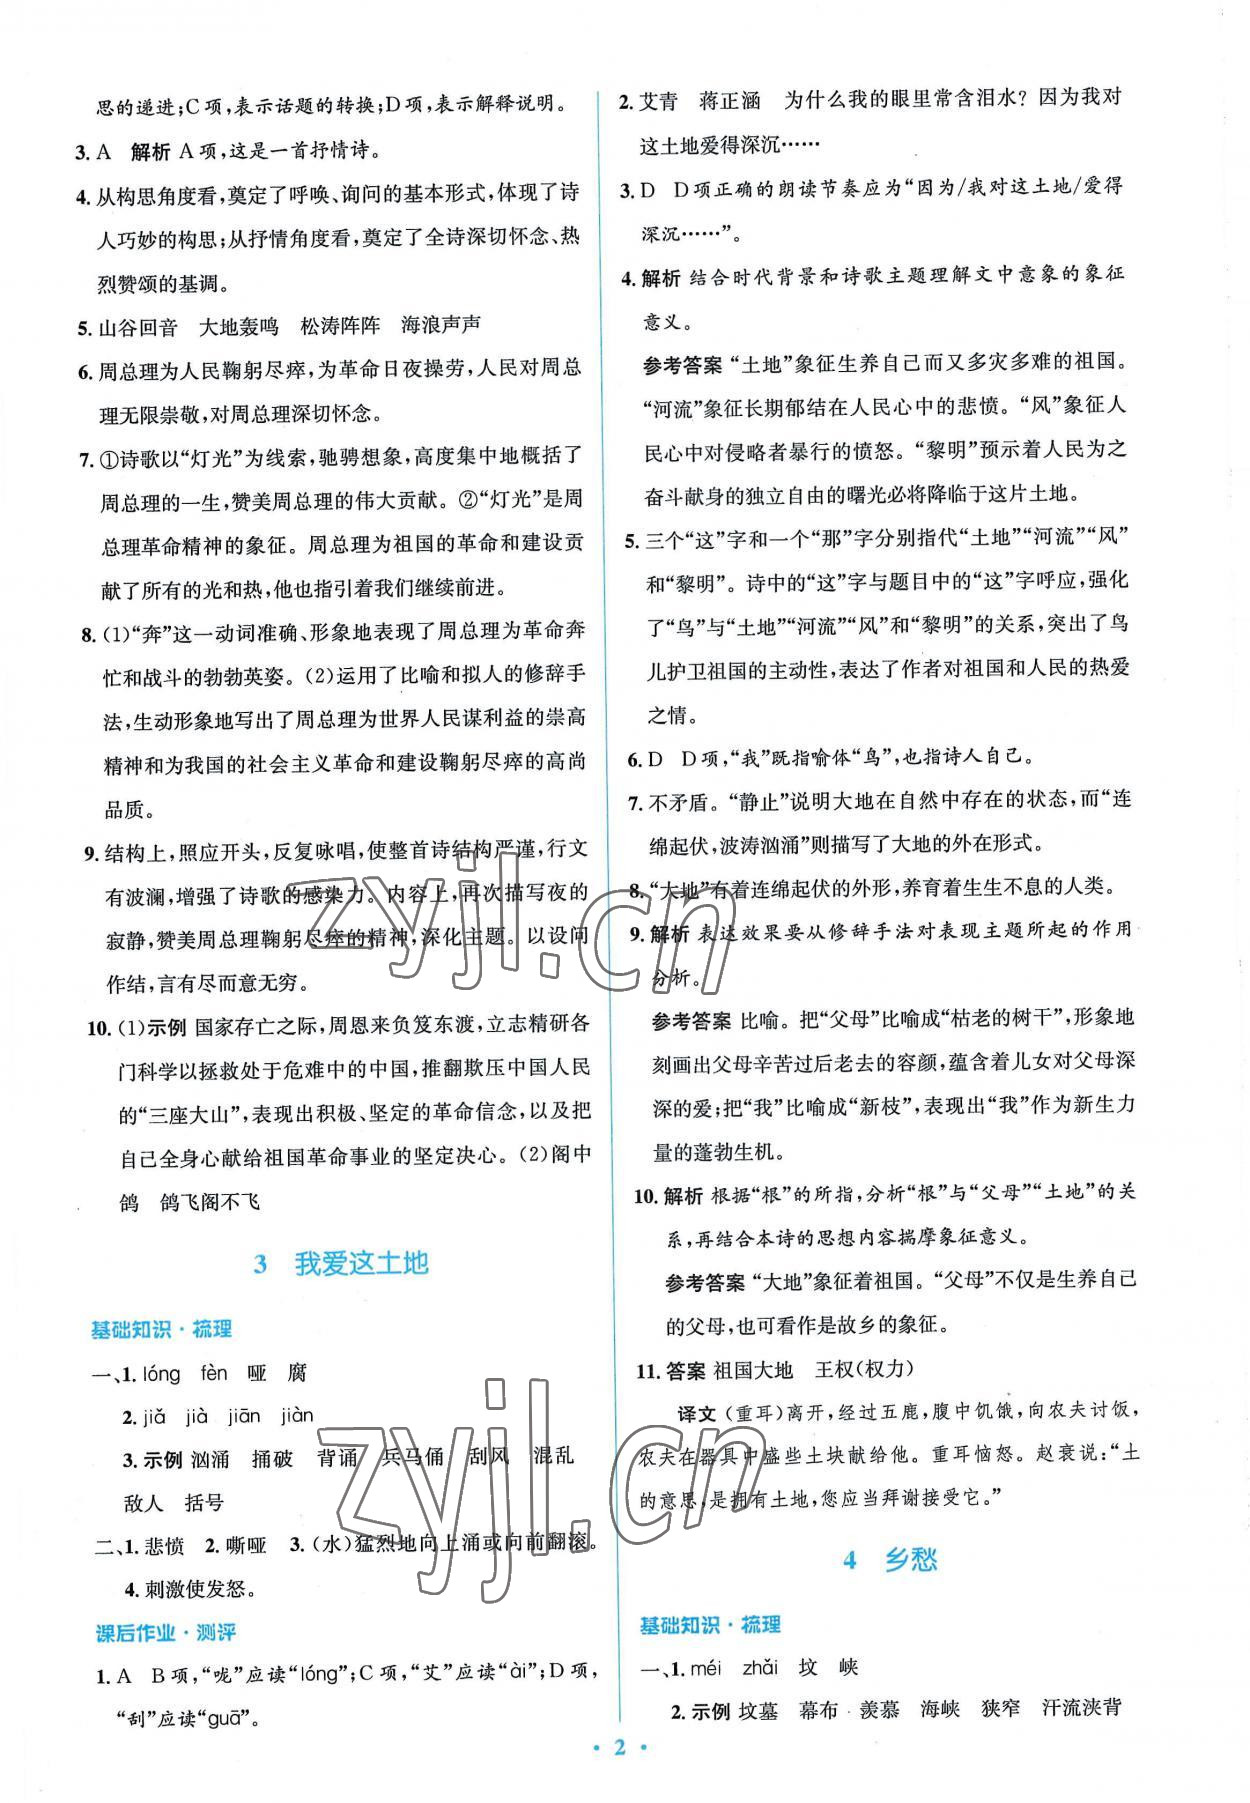 思的递进;C项,表示话题的转换;D项,表示解释说明。
3. A 解析 A项,这是一首抒情诗。
4. 从构思角度看,奠定了呼唤、询问的基本形式,体现了诗
人巧妙的构思;从抒情角度看,奠定了全诗深切怀念、热
烈赞颂的基调。
5. 山谷回音 大地轰鸣 松涛阵阵 海浪声声
6. 周总理为人民鞠躬尽瘁,为革命日夜操劳,人民对周总
理无限崇敬,对周总理深切怀念。
7. ①诗歌以“灯光”为线索,驰骋想象,高度集中地概括了
周总理的一生,赞美周总理的伟大贡献。②“灯光”是周
总理革命精神的象征。周总理为祖国的革命和建设贡
献了所有的光和热,他也指引着我们继续前进。
8. (1)“奔”这一动词准确、形象地表现了周总理为革命奔
忙和战斗的勃勃英姿。(2)运用了比喻和拟人的修辞手
法,生动形象地写出了周总理为世界人民谋利益的崇高
精神和为我国的社会主义革命和建设鞠躬尽瘁的高尚
品质。
9. 结构上,照应开头,反复咏唱,使整首诗结构严谨,行文
有波澜,增强了诗歌的感染力。内容上,再次描写夜的
寂静,赞美周总理鞠躬尽瘁的精神,深化主题。以设问
作结,言有尽而意无穷。
10. (1)示例 国家存亡之际,周恩来负笈东渡,立志精研各
门科学以拯救处于危难中的中国,推翻欺压中国人民
的“三座大山”,表现出积极、坚定的革命信念,以及把
自己全身心献给祖国革命事业的坚定决心。(2)阁中
鸽 鸽飞阁不飞
3 我爱这土地
基础知识·梳理
一、1. lóng fèn 哑 腐
2. jiǎ jià jiān jiàn
3. 示例 汹涌 捅破 背诵 兵马俑 刮风 混乱
敌人 括号
二、1. 悲愤 2. 嘶哑 3. (水)猛烈地向上涌或向前翻滚。
4. 刺激使发怒。
课后作业·测评
1. A B项,“咙”应读“lóng”;C项,“艾”应读“ài”;D项,
“刮”应读“guā”。
2. 艾青 蒋正涵 为什么我的眼里常含泪水?因为我对
这土地爱得深沉……
3. D D项正确的朗读节奏应为“因为/我对这土地/爱得
深沉……”。
4. 解析 结合时代背景和诗歌主题理解文中意象的象征
意义。
参考答案 “土地”象征生养自己而又多灾多难的祖国。
“河流”象征长期郁结在人民心中的悲愤。“风”象征人
民心中对侵略者暴行的愤怒。“黎明”预示着人民为之
奋斗献身的独立自由的曙光必将降临于这片土地。
5. 三个“这”字和一个“那”字分别指代“土地”“河流”“风”
和“黎明”。诗中的“这”字与题目中的“这”字呼应,强化
了“鸟”与“土地”“河流”“风”和“黎明”的关系,突出了鸟
儿护卫祖国的主动性,表达了作者对祖国和人民的热爱
之情。
6. D D项,“我”既指喻体“鸟”,也指诗人自己。
7. 不矛盾。“静止”说明大地在自然中存在的状态,而“连
绵起伏,波涛汹涌”则描写了大地的外在形式。
8. “大地”有着连绵起伏的外形,养育着生生不息的人类。
9. 解析 表达效果要从修辞手法对表现主题所起的作用
分析。
参考答案 比喻。把“父母”比喻成“枯老的树干”,形象地
刻画出父母辛苦过后老去的容颜,蕴含着儿女对父母深
深的爱;把“我”比喻成“新枝”,表现出“我”作为新生力
量的蓬勃生机。
10. 解析 根据“根”的所指,分析“根”与“父母”“土地”的关
系,再结合本诗的思想内容揣摩象征意义。
参考答案 “大地”象征着祖国。“父母”不仅是生养自己
的父母,也可看作是故乡的象征。
11. 答案 祖国大地 王权(权力)
译文 (重耳)离开,经过五鹿,腹中饥饿,向农夫讨饭,
农夫在器具中盛些土块献给他。重耳恼怒。赵衰说:“土
的意思,是拥有土地,您应当拜谢接受它。”
4 乡愁
基础知识·梳理
一、1. méi zhǎi 坟 峡
2. 示例 坟墓 幕布 羡慕 海峡 狭窄 汗流浃背
· 2 ·
zyjl.cn
zyjl.cn